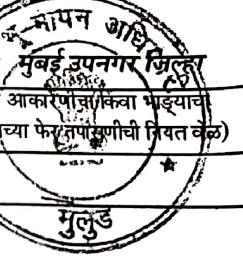 मापन अधि
मुंबई उपनगर जिल्हा
आकारणीचा किंवा भाड्याची
च्या फेर तपासणीची नियत वेळ)
मुलुंड